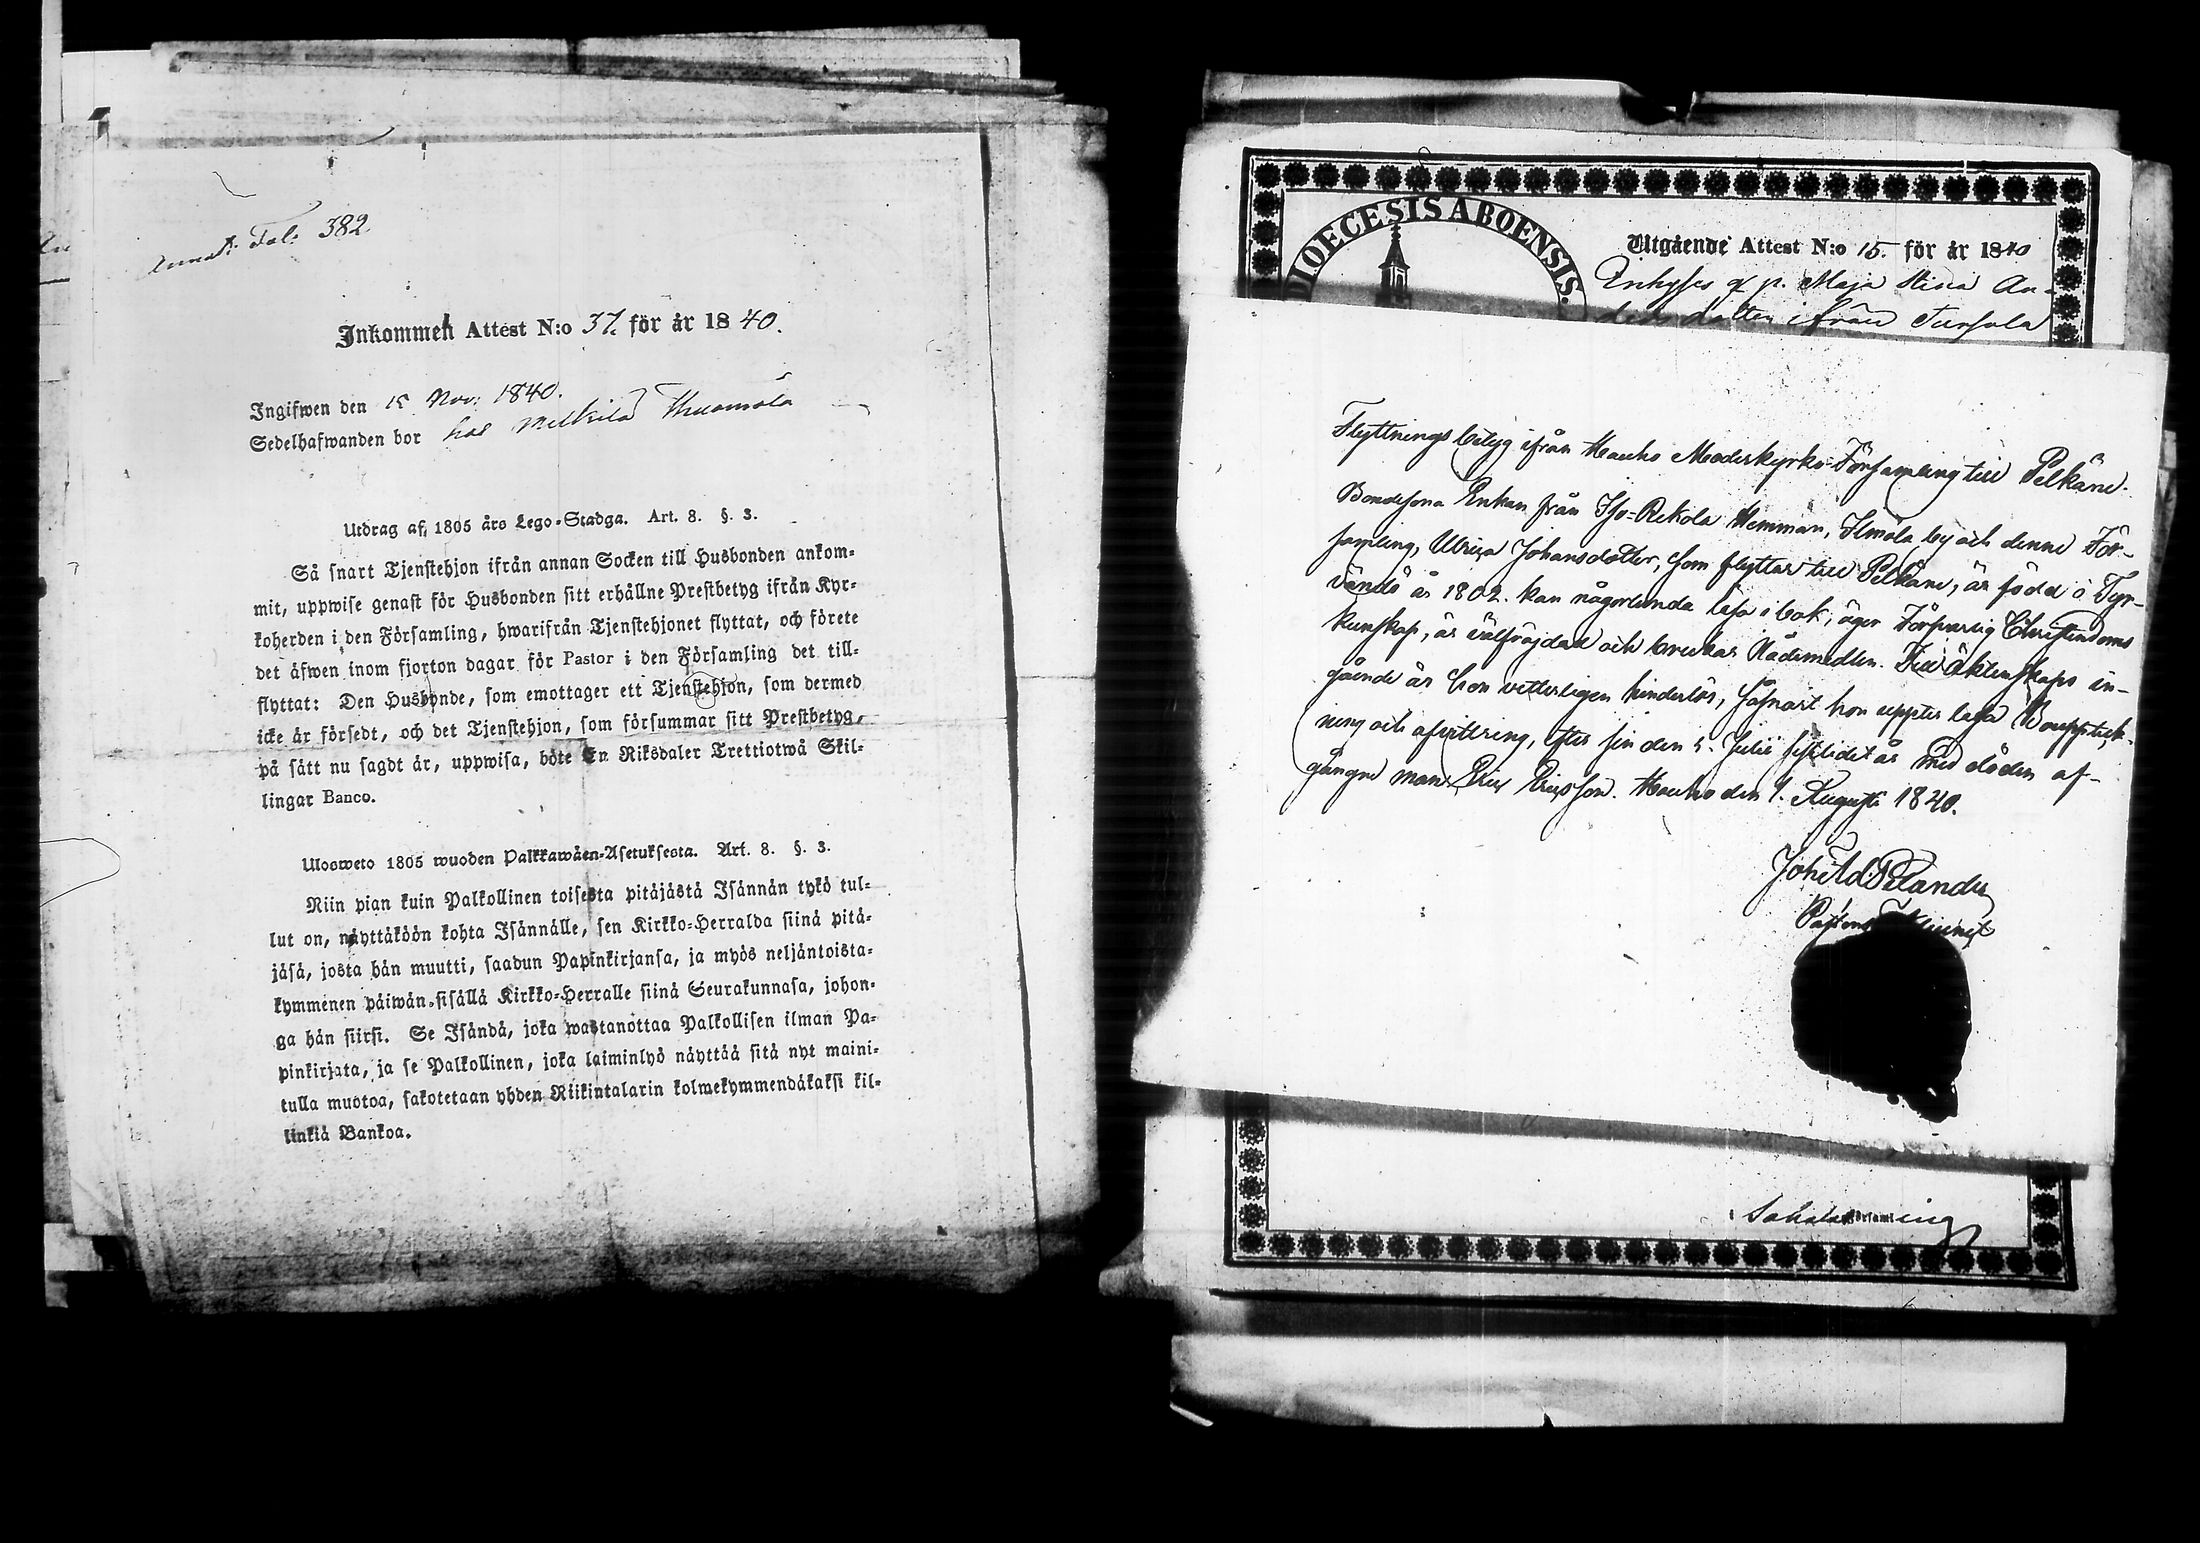 Annot: Fol: 382
Inkommen Attest N:o 37. för år 1840.
Ingifwen den 15 Nov: 1840.
Sedelhafwanden bor hos
Utdrag af 1805 års Lego-Stadga. Art. 8. §. 3.
Så snart Tjenstehjon ifrån annan Socken till Husbonden ankom-
mit, uppwise genast för Husbonden sitt erhållne Prestbetyg ifrån Kyr-
koherden i den Församling, hwarifrån Tjenstehjonet flyttat, och förete
det äfwen inom fjorton dagar för Pastor i den Församling det till-
flyttat: Den Husbonde, som emottager ett Tjenstehjon, som dermed
icke är försedt, och det Tjenstehjon, som försummar sitt Prestbetyg,
på sätt nu sagdt är, uppwisa, böte En Riksdaler Trettiotwå Skil-
lingar Banco.
Ulosweto 1805 wuoden Palkkawäen-Asetuksesta. Art. 8. §. 3.
Niin pian kuin Palkollinen toisesta pitäjästä Isännän tykö tul-
lut on, näyttäköön kohta Isännälle, sen Kirkko-Herralda siinä pitä-
jäsä, josta hän muutti, saadun Papinkirjansa, ja myös neljäntoista-
kymmenen päiwän sisällä Kirkko-Herralle siinä Seurakunnasa, johon-
ga hän siirsi. Se Isändä, joka wastanottaa Palkollisen ilman Pa-
pinkirjata, ja se Palkollinen, joka laiminlyö näyttää sitä nyt maini-
tulla muotoa, sakotetaan yhden Riikintalarin kolmekymmendäkaksi kil-
linkiä Bankoa.
DIOECESIS ABOENSIS.
Utgående Attest N:o 15. för år 1840
p. Maja Stina An-
dersdotter ifrån Tursola
Flyttnings betyg ifrån Hauho Moderkyrko Församling till Pelkäne.
Bondesona Enkan från Iso-Rekola Hemman, Ilmola by och denne För-
samling, Ulrica Johansdotter, som flyttar till Pelkäne, är född i Tyr-
vändö år 1802. kan någorlunda läsa i bok, äger Försvarlig Christendoms
kunskap, är välfräjdad och brukar Nådemedlen. Till äktenskaps in-
gående är hon vitterligen hinderlös, såsnart hon upptes lagd Bouppteck-
ning och afvittring, efter sin den 5. Julii sistlidet år med döden af-
gångne man Eric Ericsson. Hauho den 1. Augusti 1840.
Sahalax Församling